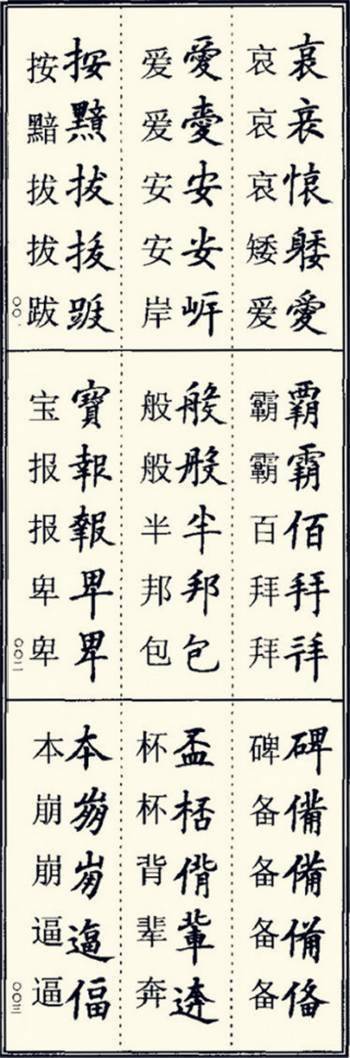 愛
哀哀哀矮爱
愛安
爱爱安安岸
按拔
按黯拔拔跋
〇〇一
覇霸佰拜
霸霸百拜拜
般般半邦包
般般半邦包
寳報報卑卑
宝报报卑卑
〇〇二
碑備備備俻
碑备备备备
盃桮偝軰逩
杯杯背辈奔
本崩逼偪
本崩崩逼逼
〇〇三